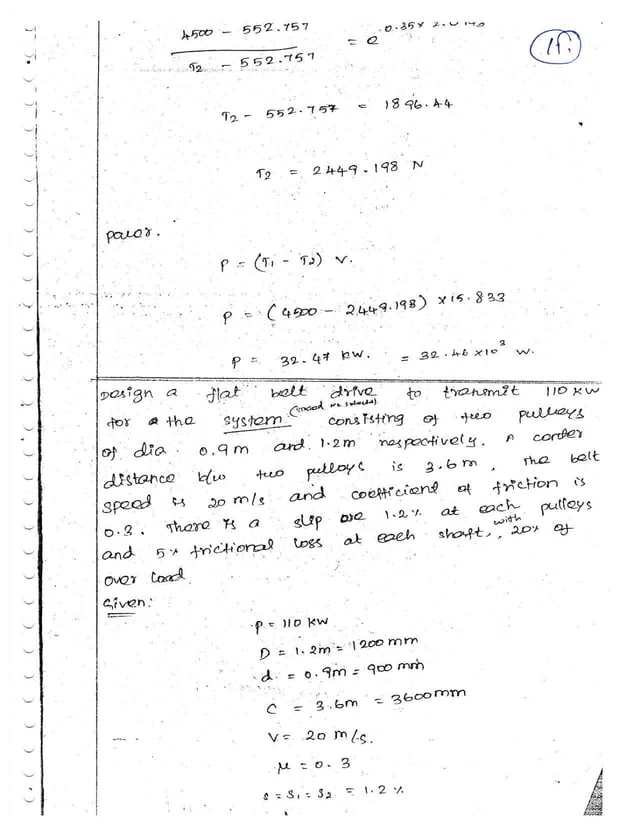 4500 - 552.757 / T2 - 552.757 = e^0.35x
17.
T2 - 552.757 = 1896.44
T2 = 2449.198 N
power.
P = (T1 - T2) V.
P = (4500 - 2449.198) x 15.833
P = 32.47 kW. = 32.46 x10^3 W.
Design a flat belt drive to transmit 110 KW
for a the system consisting of two pulleys
of dia 0.9m and 1.2m respectively. A center
distance b/w two pulleys is 3.6m, the belt
speed is 20 m/s and coefficient of friction is
0.3. There is a slip are 1.2% at each pulleys
and 5% frictional loss at each shaft, with 20% of
over load.
Given:
P = 110 KW
D = 1.2m = 1200 mm
d = 0.9m = 900 mm
C = 3.6m = 3600mm
V = 20 m/s.
μ = 0.3
s = S1 = S2 = 1.2 %